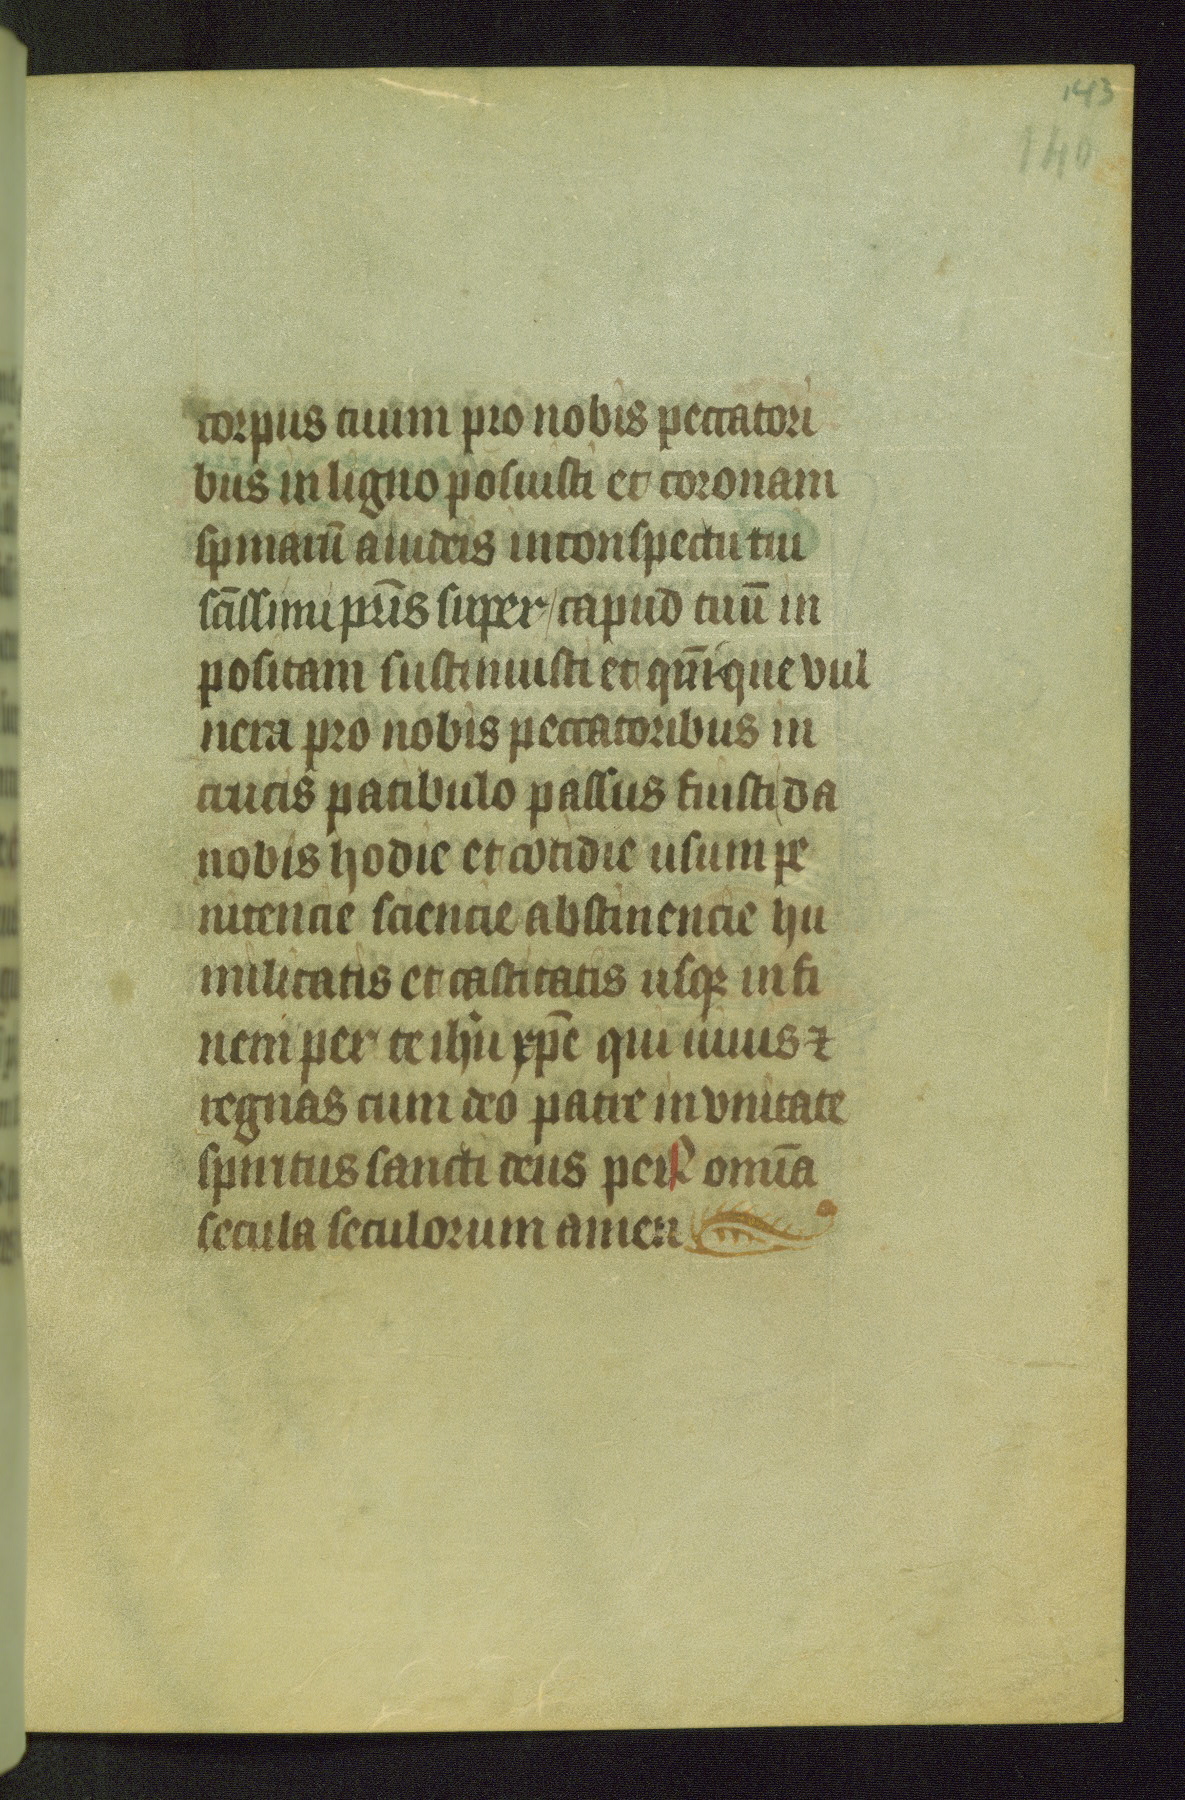 143
140
corpus tuum pro nobis peccatori
bus in ligno posuisti et coronam
spinarū a iudeis in conspectu tui
sc̄issimi pr̄is super capud tuū in
positam sustinuisti et qn̄ique vul
nera pro nobis peccatoribus in
crucis patibulo passus fuisti da
nobis hodie et cotidie usum pe
nitencie sciencie abstinencie hu
militatis et castitatis usqꝫ in fi
nem per te ihū xp̄e qui uiuis ⁊
regnas cum deo patre in vnitate
spiritus sancti deus per omīa
secula seculorum amen